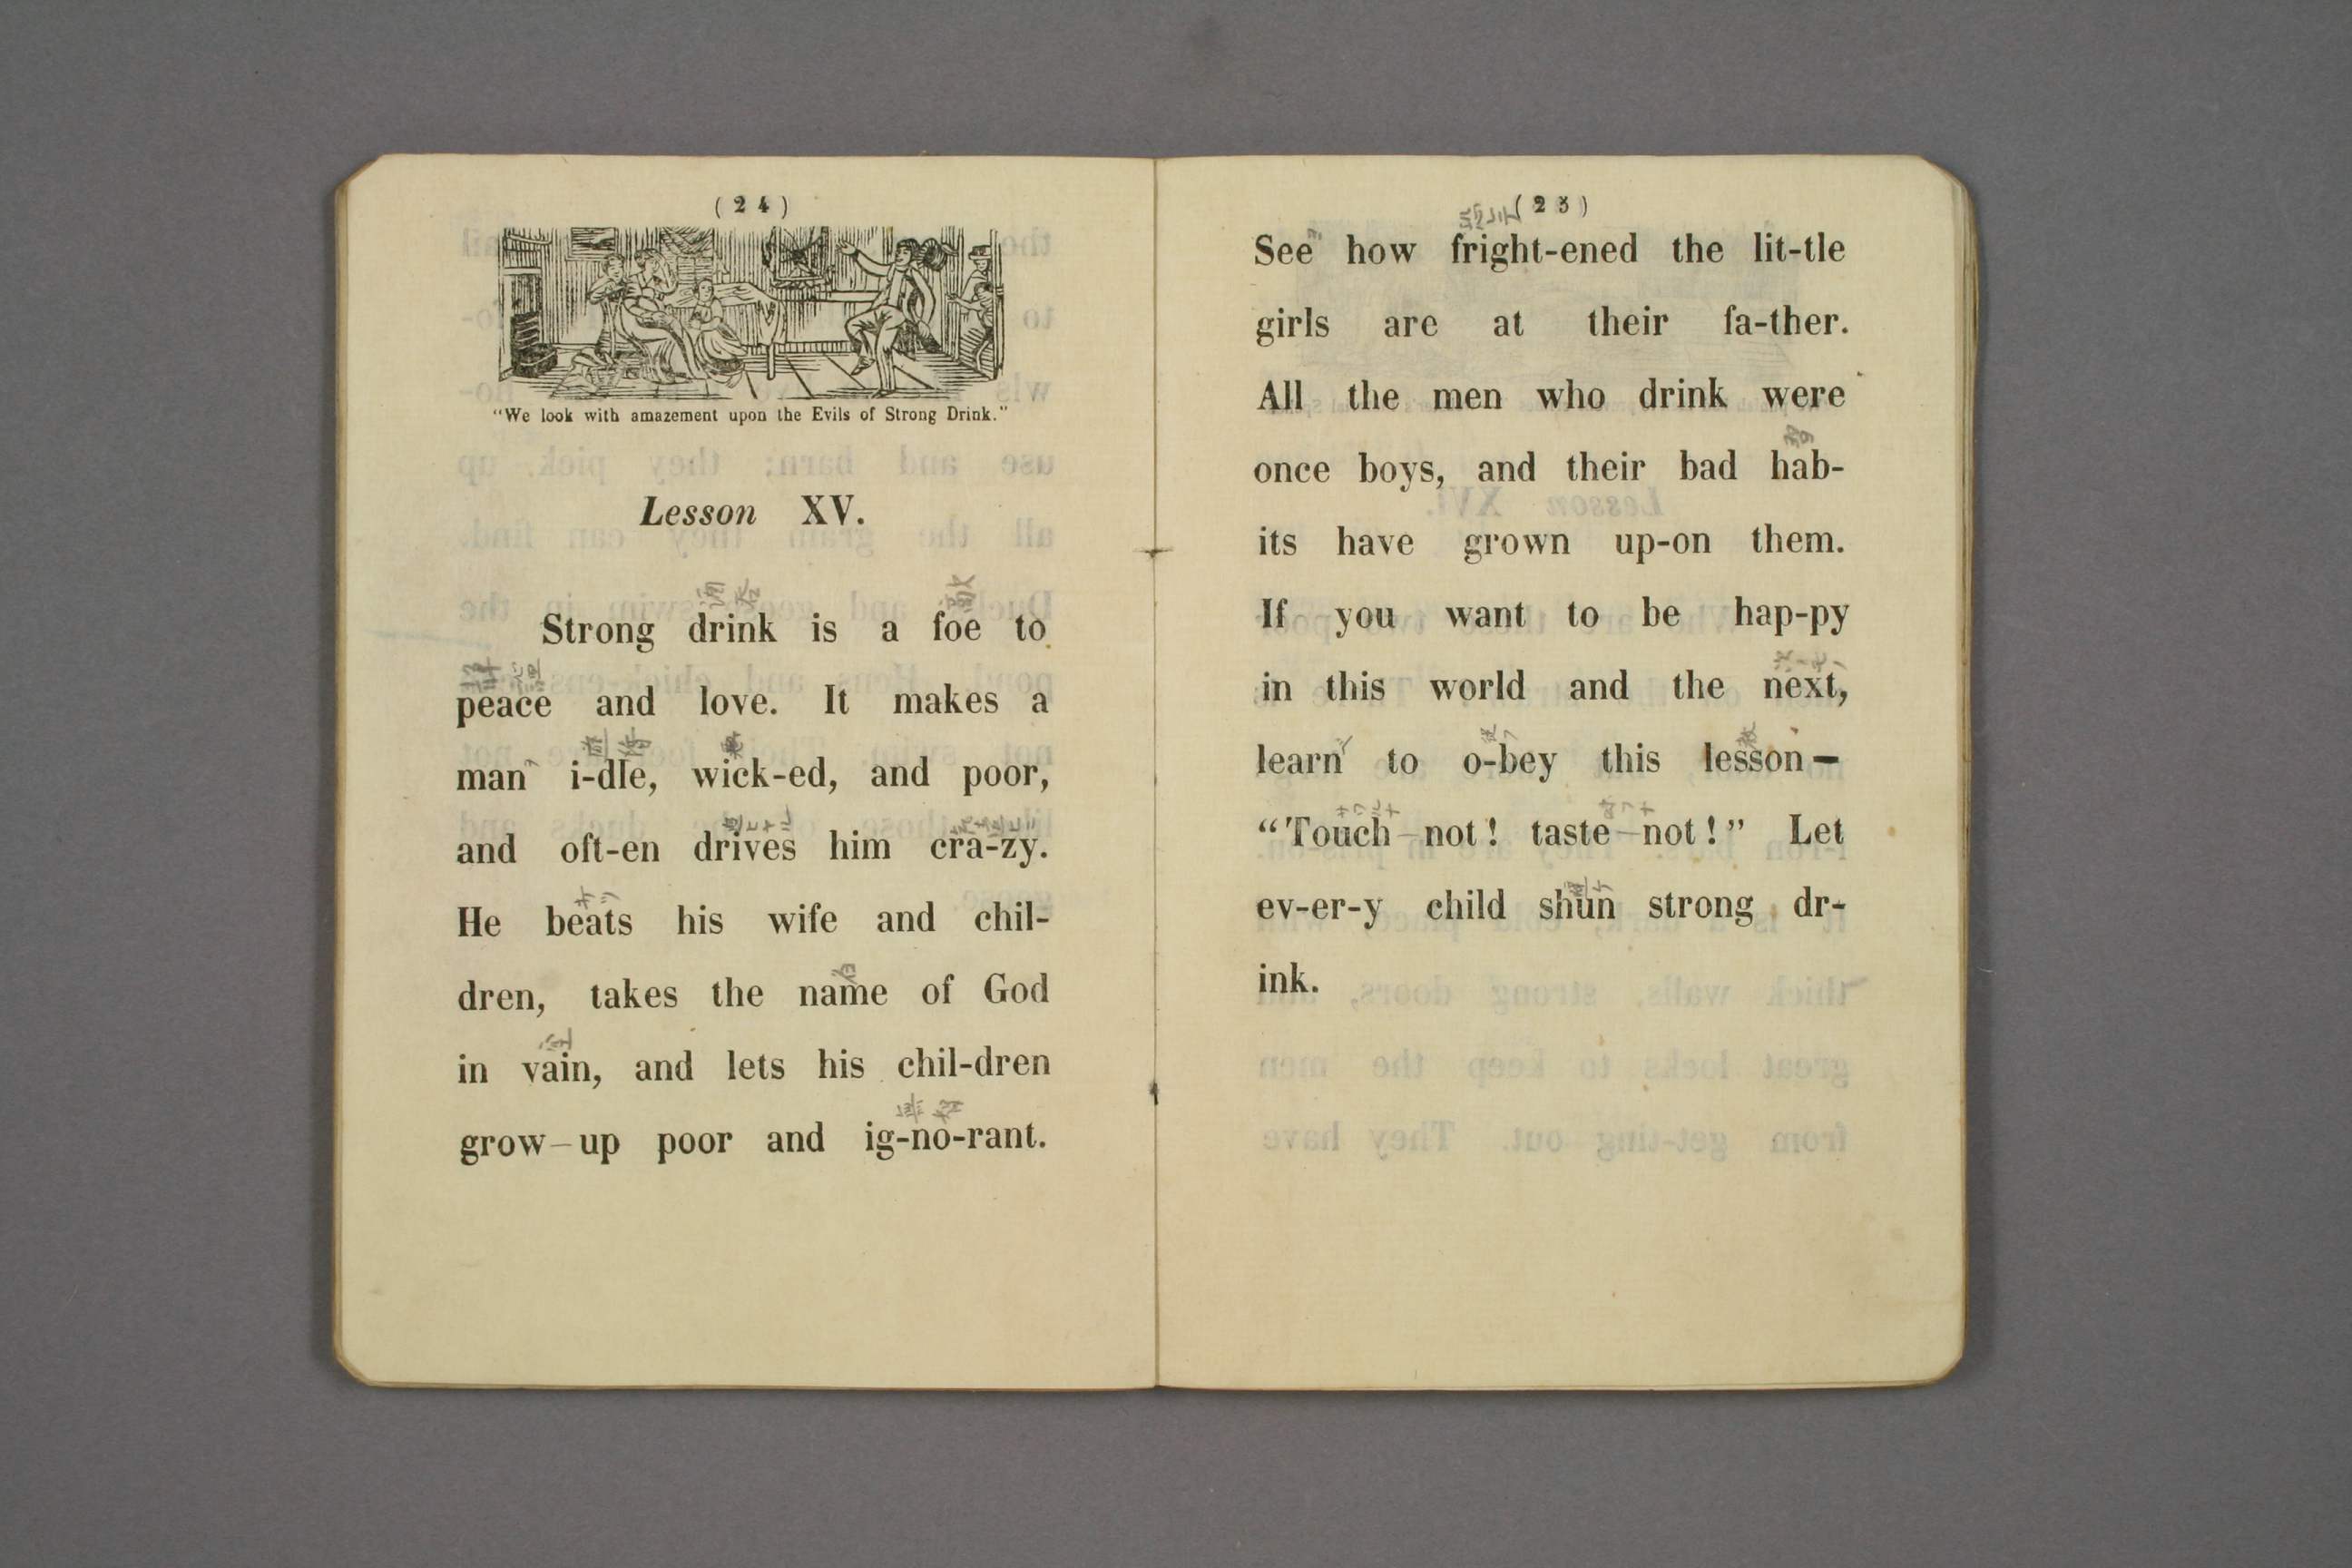 ( 2 4 )
"We look with amazement upon the Evils of Strong Drink."
Lesson XV.
Strong drink is a foe to
peace and love. It makes a
man i-dle, wick-ed, and poor,
and oft-en drives him cra-zy.
He beats his wife and chil-
dren, takes the name of God
in vain, and lets his chil-dren
grow–up poor and ig-no-rant.
( 2 3 )
See how fright-ened the lit-tle
girls are at their fa-ther.
All the men who drink were
once boys, and their bad hab-
its have grown up-on them.
If you want to be hap-py
in this world and the next,
learn to o-bey this lesson—
"Touch–not! taste–not!" Let
ev-er-y child shun strong dr-
ink.